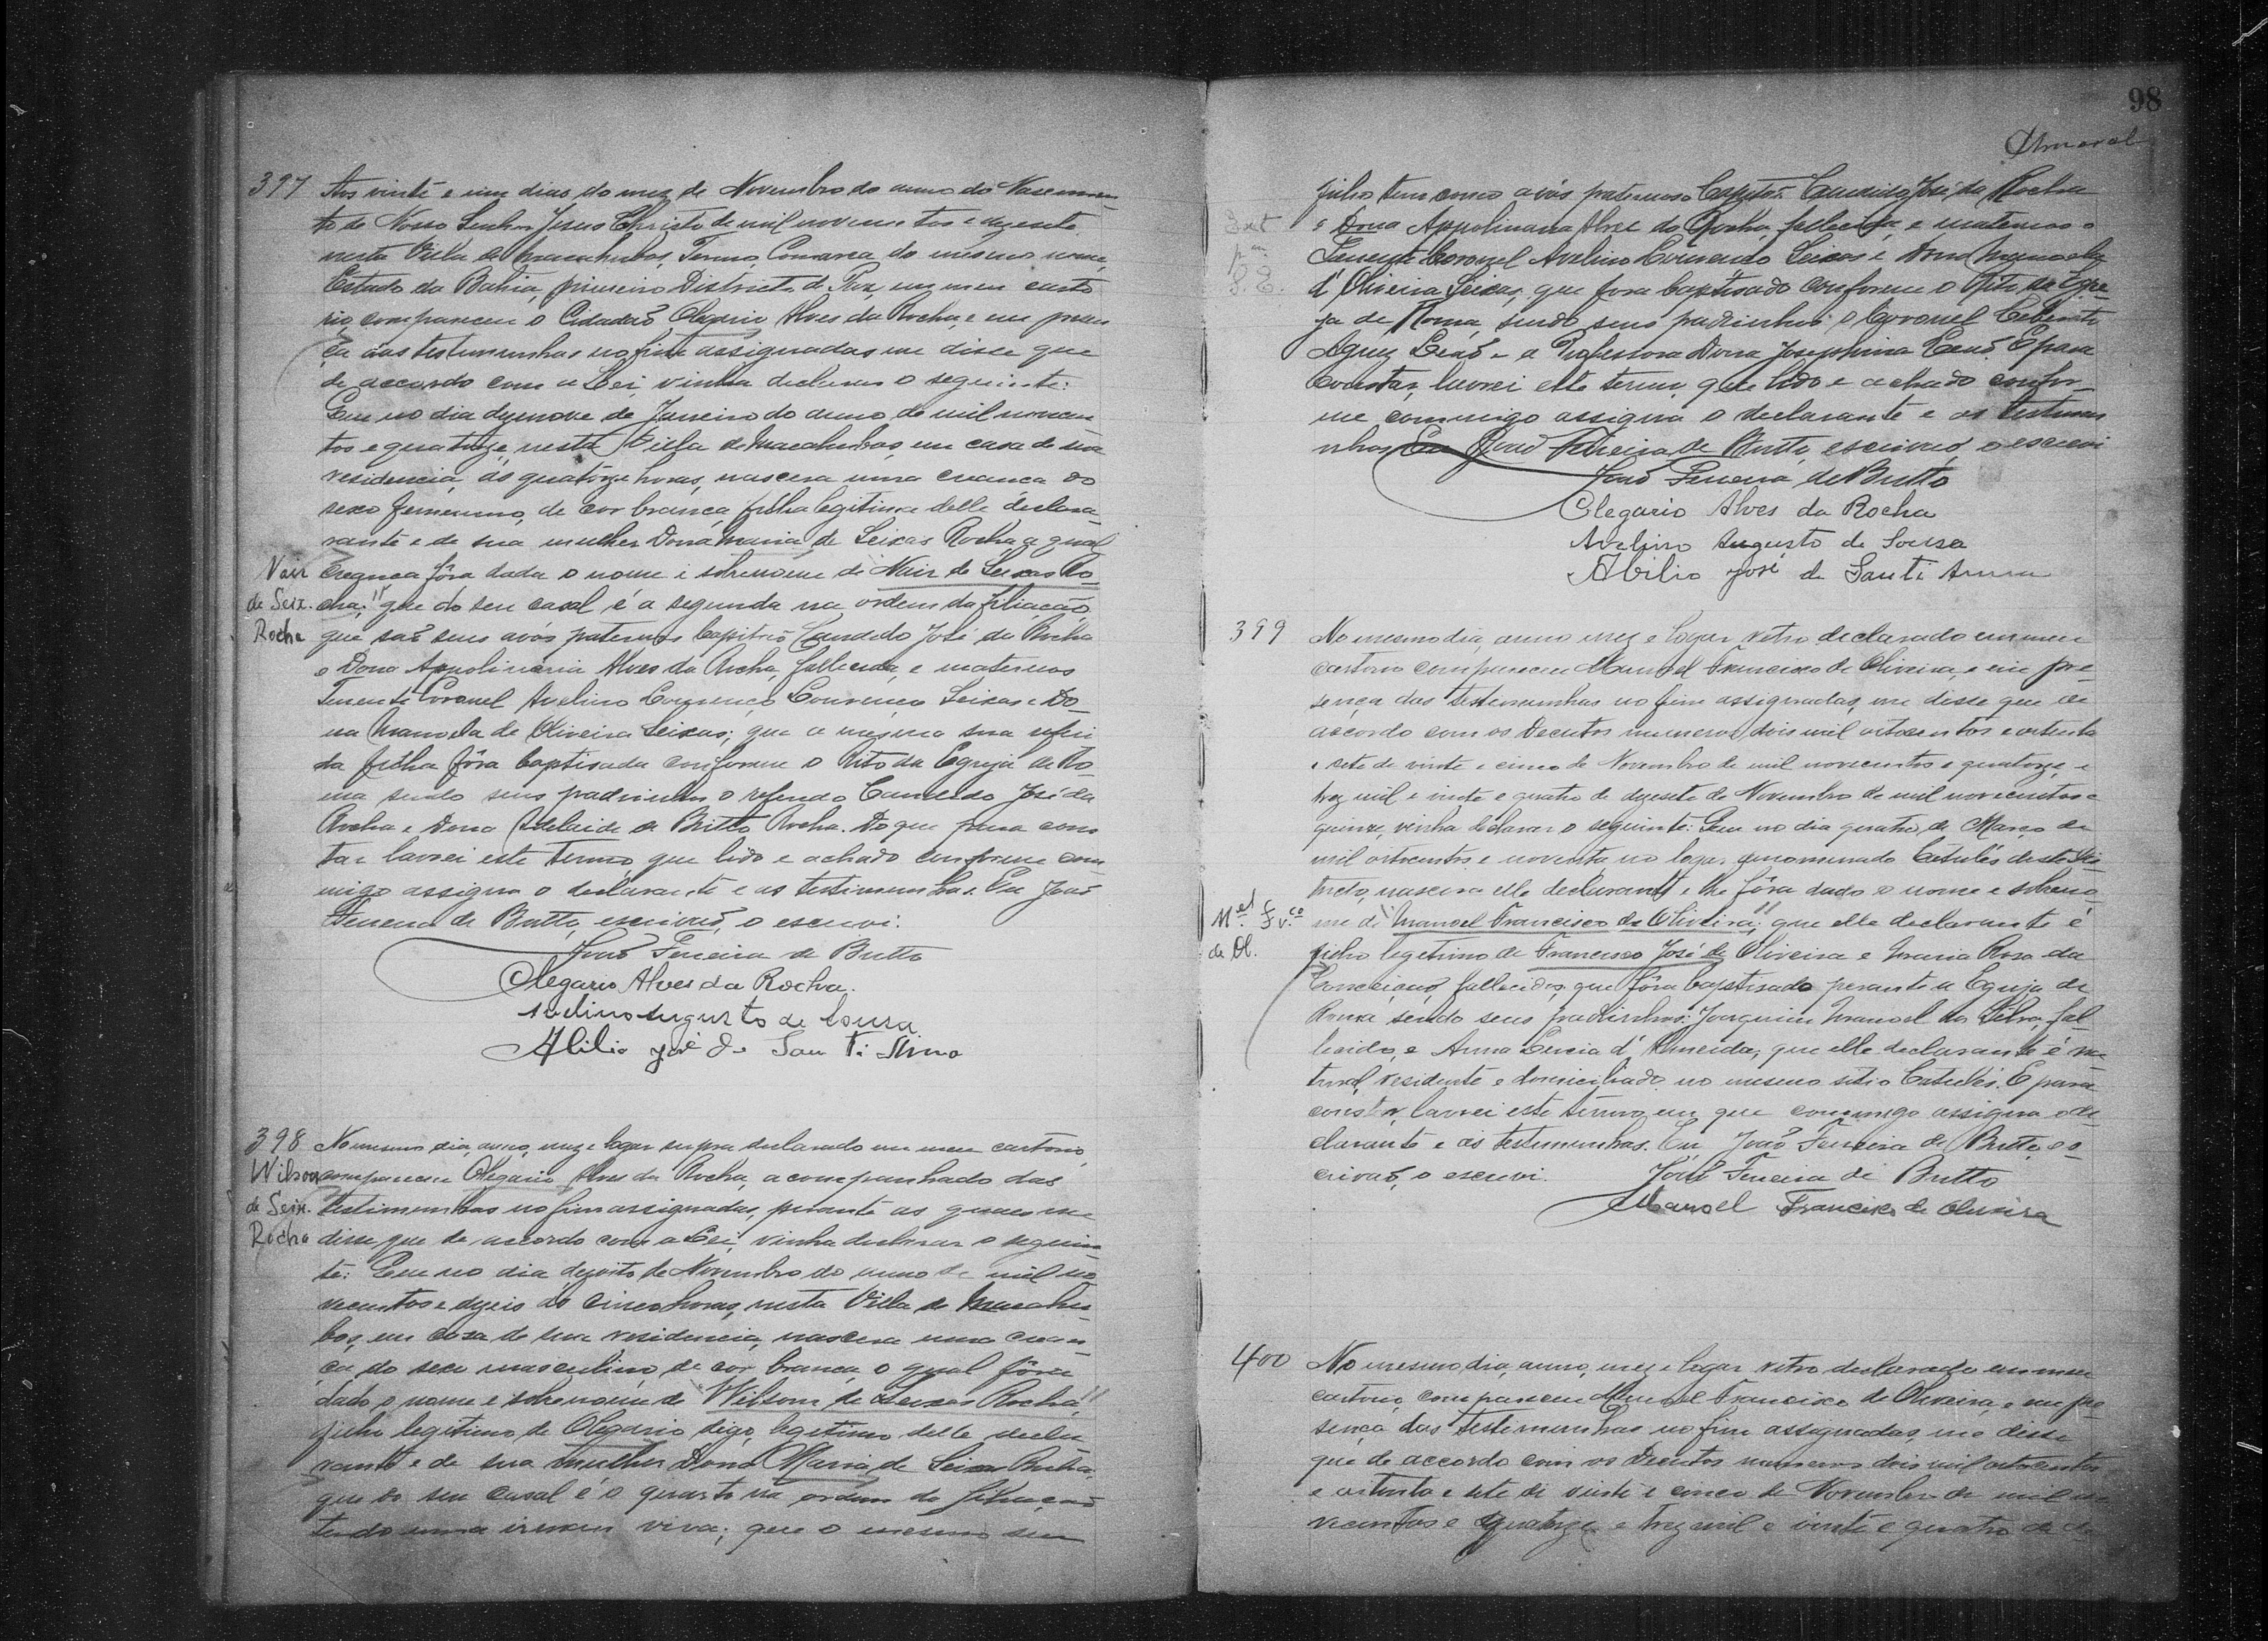 397 Aos vinte e um dias do mez de Novembro do anno do Nascimen-
to de Nosso Senhor Jesus Christo de mil novecentos e dezesete
nesta Villa de Macahubas, Termo, Comarca do mesmo nome,
Estado da Bahia, primeiro Districto de Paz, em meu carto-
rio, compareceu o Cidadão Olegario Alves da Rocha, e em presen-
ça das testemunhas no fim assignadas me disse que
de accordo com a Lei, vinha declarar o seguinte:
Que no dia dezenove de Janeiro do anno de mil novecen-
tos e quatorze, nesta Villa de Macahubas, em casa de sua
residencia, ás quatorze horas, nascera uma creança do
sexo femenino, de cor branca, filha legitima delle decla-
rante e de sua mulher Dona Maria de Seixas Rocha, a qual
Nair creança fôra dado o nome e sobrenome de Nair de Seixas Ro-
de Seix. cha," que do seu casal é a segunda na ordem da filiação
Rocha que são seus avós paternos Capitão Candido José da Rocha
e Dona Appolinaria Alves da Rocha, fallecida, e maternos
Tenente Coronel Avelino Lourenço Seixas e Do-
na Manoela de Oliveira Seixas; que a mesma sua referi-
da filha fôra baptisada conforme o Rito da Egreja de Ro-
ma sendo seus padrinhos o referido Candido José da
Rocha e Dona Adelaide de Britto Rocha. Do que para cons-
tar lavrei este termo, que lido e achado conforme com-
migo assigna o declarante e as testemunhas. Eu João
Ferreira de Britto, escrivão, o escrevi.
João Ferreira de Britto
Olegario Alves da Rocha.
Avelino Augusto de Sousa
Abilio José de Santi Anna
398 No mesmo dia, anno, mez e logar supra declarado em meu cartorio,
Wilson compareceu Olegario Alves da Rocha, acompanhado das
de Seix. testemunhas no fim assignadas, perante as quaes me
Rocha disse que de accordo com a Lei, vinha declarar o seguin-
te: Que no dia dezoito de Novembro do anno de mil no-
vecentos e dezeis ás cinco horas, nesta Villa de Macahu-
bas, em casa de sua residencia, nascera uma crean-
ça do sexo masculino, de cor branca, o qual fôra
dado o nome e sobrenome de "Wilson de Seixas Rocha,"
filho legitimo de Olegario digo, legitimo delle decla-
rante e de sua mulher Dona Maria de Seixas Rocha,
que do seu casal é o quarto na ordem da filiação
tendo uma irman viva; que o mesmo seu
98
Amaral
filho tem como avós paternos Capitão Candido José da Rocha
e Dona Appolinaria Alves da Rocha, fallecida, e maternos o
Tenente Coronel Avelino Lourenço Seixas e Dona Manoela
d'Oliveira Seixas, que fora baptisado conforme o Rito da Egre-
ja de Roma, sendo seus padrinhos o Coronel
Leão e a Professora Dona Josephina Leão. E para
constar, lavrei este termo, que lido e achado confor-
me commigo assigna o declarante e as testemu-
nhas Eu João Ferreira de Britto, escrivão, o escrevi
João Ferreira de Britto
Olegario Alves da Rocha
Avelino Augusto de Sousa
Abilio José de Santi Anna
399 No mesmo dia, anno, mez e logar retro declarado em meu
cartorio compareceu Manoel Francisco de Oliveira, e em pre-
sença das testemunhas no fim assignadas, me disse que de
accordo com os Decretos numeros dois mil oitocentos e oitenta
e sete de vinte e cinco de Novembro de mil novecentos e quatorze, e
trez mil e vinte e quatro de dezesete de Novembro de mil novecentos e
quinze, vinha declarar o seguinte: Que no dia quatro de Março de
mil oitocentos e noventa no logar denominado Catulés deste Dis-
tricto, nascera elle declarante e lhe fôra dado o nome e sobreno-
Mel. Fr.co me de "Manoel Francisco de Oliveira"; que elle declarante é
de Ol. filho legitimo de Francisco José de Oliveira e Maria Rosa da
Conceição, fallecidos, que fôra baptisado perante a Egreja de
Roma sendo seus padrinhos: Joaquim Manoel da Silva, fal-
lecido, e Anna Lucia d'Almeida; que elle declarante é na-
tural, residente e domiciliado no mesmo sitio Catulés. E para
constar, lavrei este termo, em que commigo assigna o de-
clarante e as testemunhas. Eu, João Ferreira de Britto, es-
crivão, o escrevi. João Ferreira de Britto
Manoel Francisco de Oliveira
400 No mesmo dia, anno, mez e logar retro declarado em meu
cartorio, compareceu Manoel Francisco de Oliveira, e em pre-
sença das testemunhas no fim assignadas, me disse
que de accordo com os Decretos numeros dois mil oitocentos
e oitenta e sete de vinte e cinco de Novembro de mil no-
vecentos e quatorze e trez mil e vinte e quatro de de-